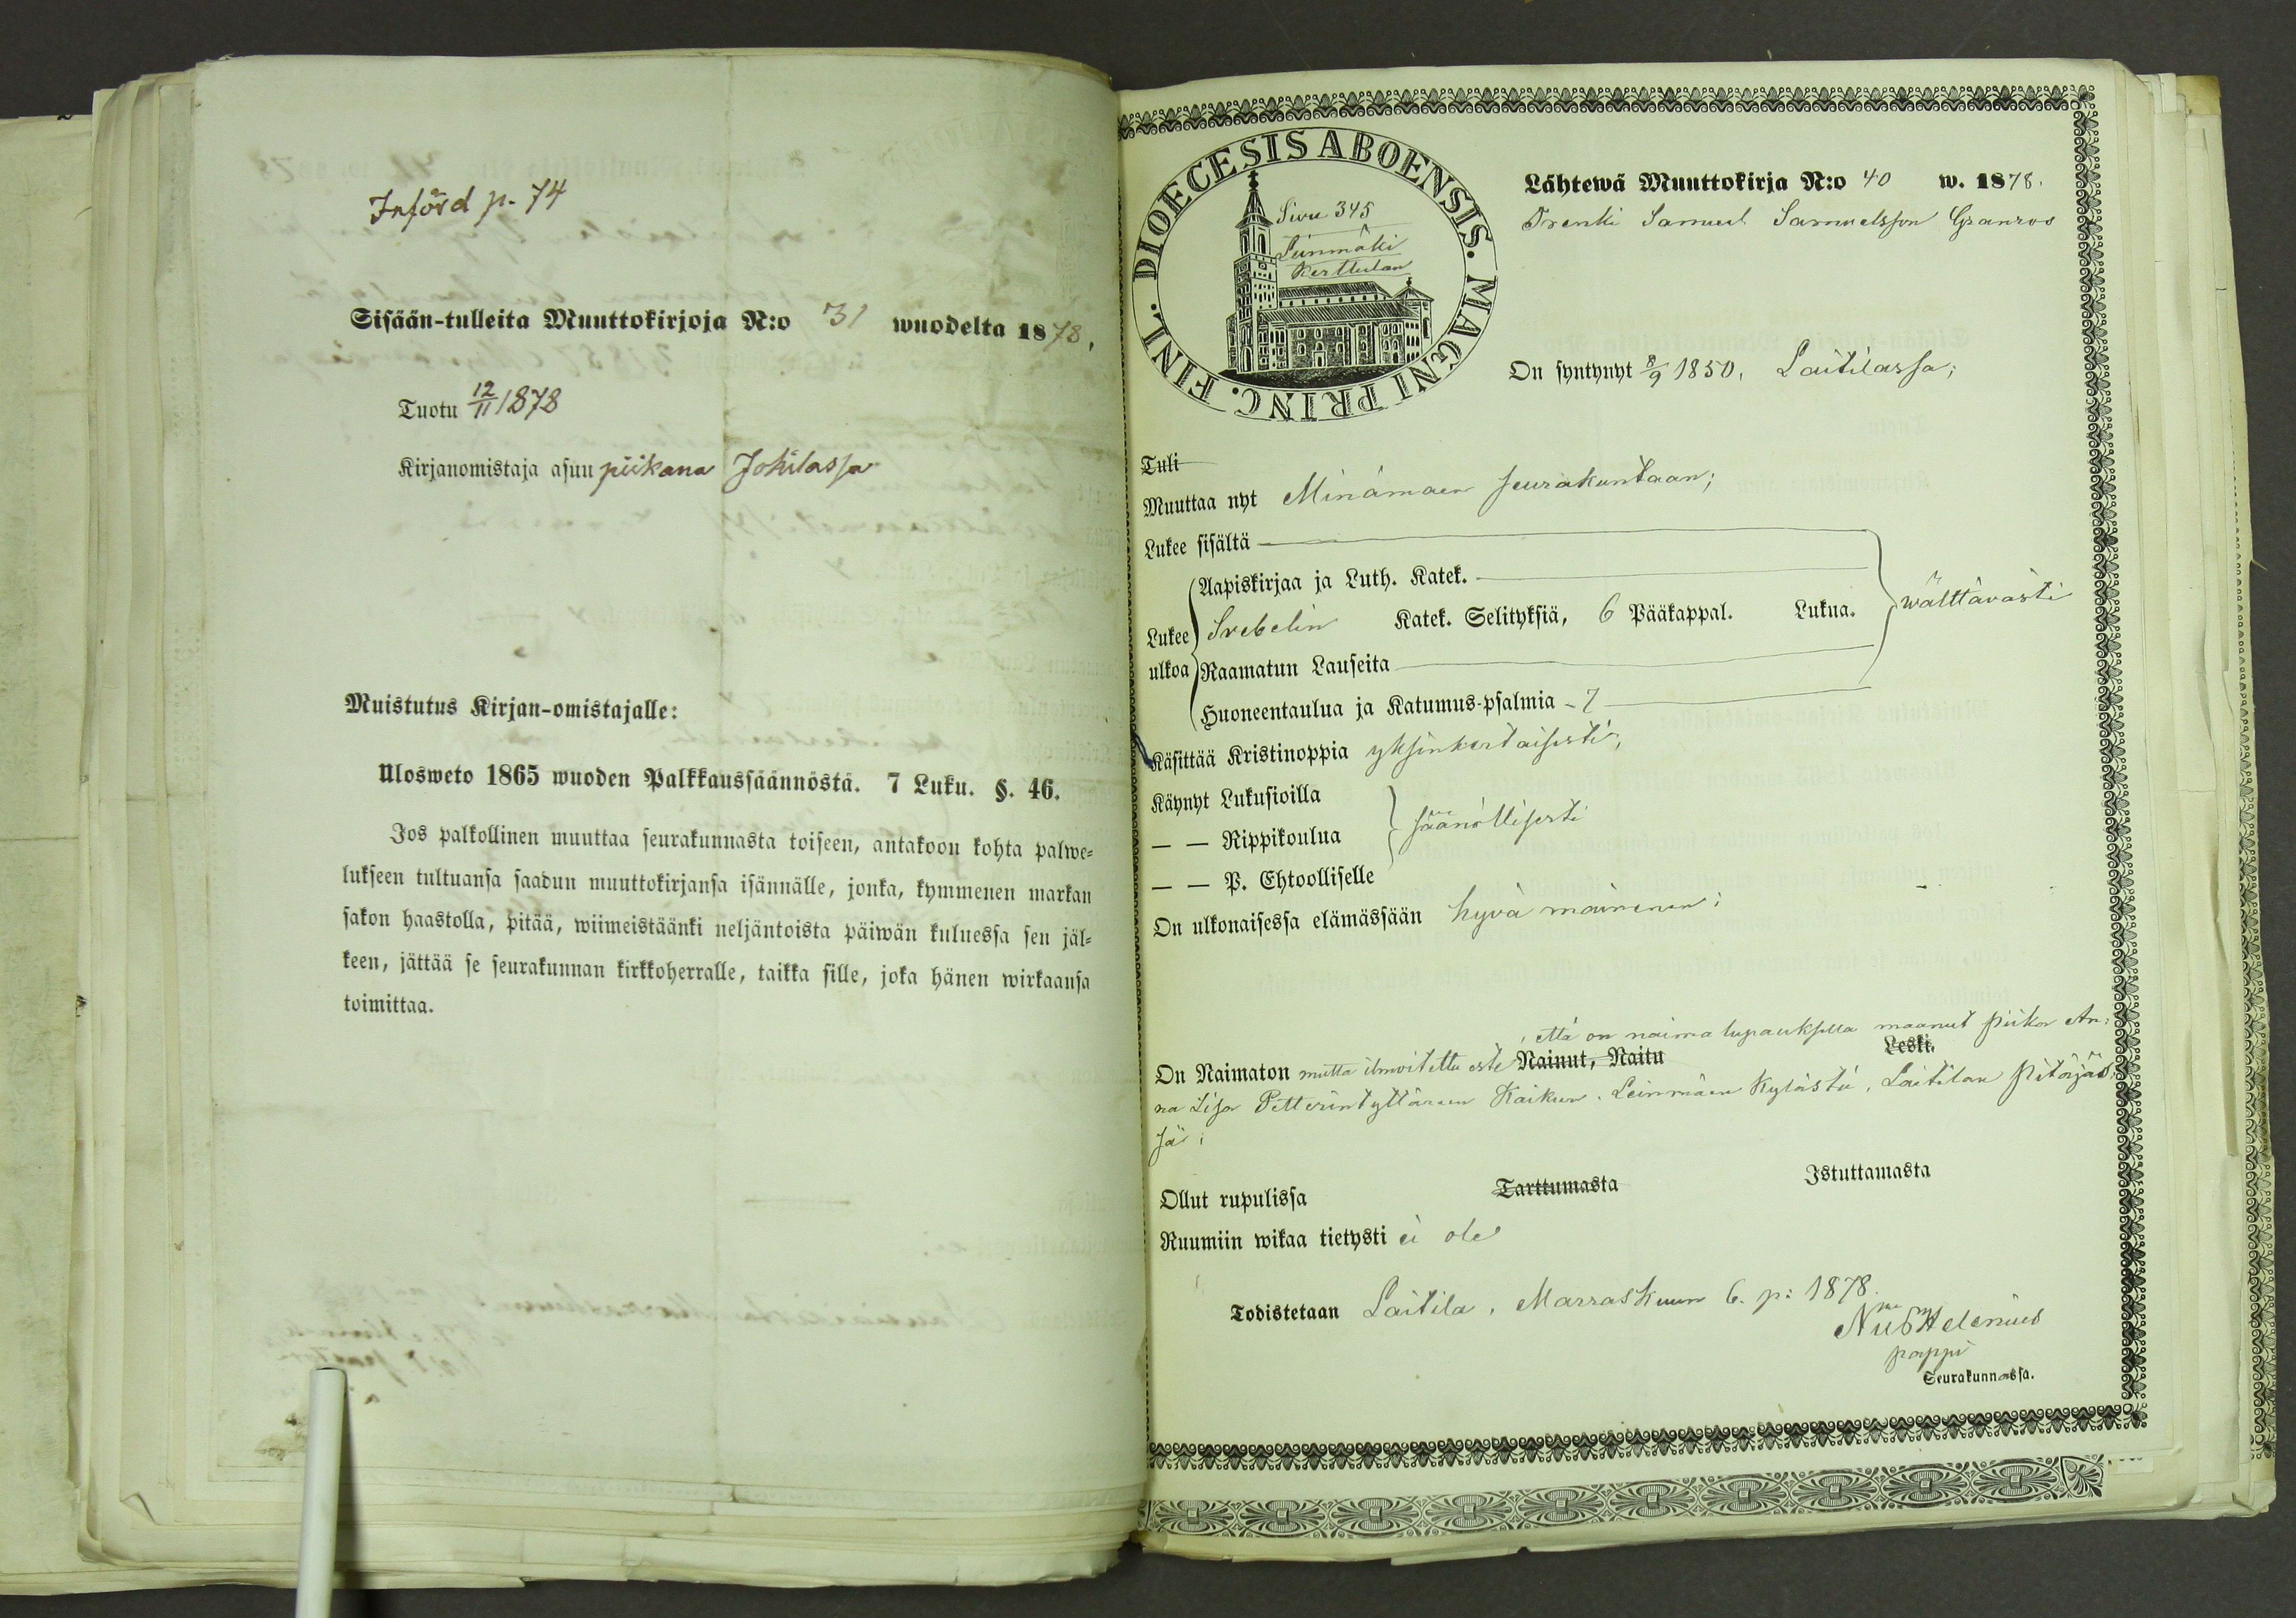 Införd p. 74
Sisään-tulleita Muuttokirjoja N:o 31 wuodelta 1878.
Tuotu 12/11 1878
Kirjanomistaja asuu piikana Jokilassa
Muistutus Kirjan-omistajalle:
Ulosweto 1865 wuoden Palkkaussäännöstä. 7 Luku. §. 46.
Jos palkollinen muuttaa seurakunnasta toiseen, antakoon kohta palwe=
lukseen tultuansa saadun muuttokirjansa isännälle, jonka, kymmenen markan
sakon haastolla, pitää, wiimeistäänki neljäntoista päiwän kuluessa sen jäl=
keen, jättää se seurakunnan kirkkoherralle, taikka sille, joka hänen wirkaansa
toimittaa.
DIOECESIS ABOENSIS. MAGNI PRINC. FINL.
Sivu 345
Leinmäki
Kerttulan
Lähtewä Muuttokirja N:o 40 w. 1878.
Drenki Samuel Samuelsson Granros
On syntynyt 8/9 1850. Laitilassa;
Tuli
Muuttaa nyt Minämaen seurakuntaan;
Lukee sisältä
Lukee ulkoa
Aapiskirjaa ja Luth. Katek.
Svebelin Katek. Selityksiä, 6 Pääkappal. Lukua. wälttävästi
Raamatun Lauseita
Huoneentaulua ja Katumus-psalmia - 7
Käsittää Kristinoppia yksinkertaisesti;
Käynyt Lukusioilla
— — Rippikoulua säänöllisesti
— — P. Ehtoolliselle
On ulkonaisessa elämässään hyvä maininen;
, että on naima lupauksella maanut piikan An:
On Naimaton mutta ilmoitettu este Nainut, Naitu Leski.
na Lisa Petterintyttären Kaikun. Leinmäen Kylästä, Laitilan Pitäjäs:
sä;
Ollut rupulissa Tarttumasta Istuttamasta
Ruumiin wikaa tietysti ei ole
Todistetaan Laitila, Marraskuun 6. p: 1878.
Helenius
pappi
Seurakunnassa.